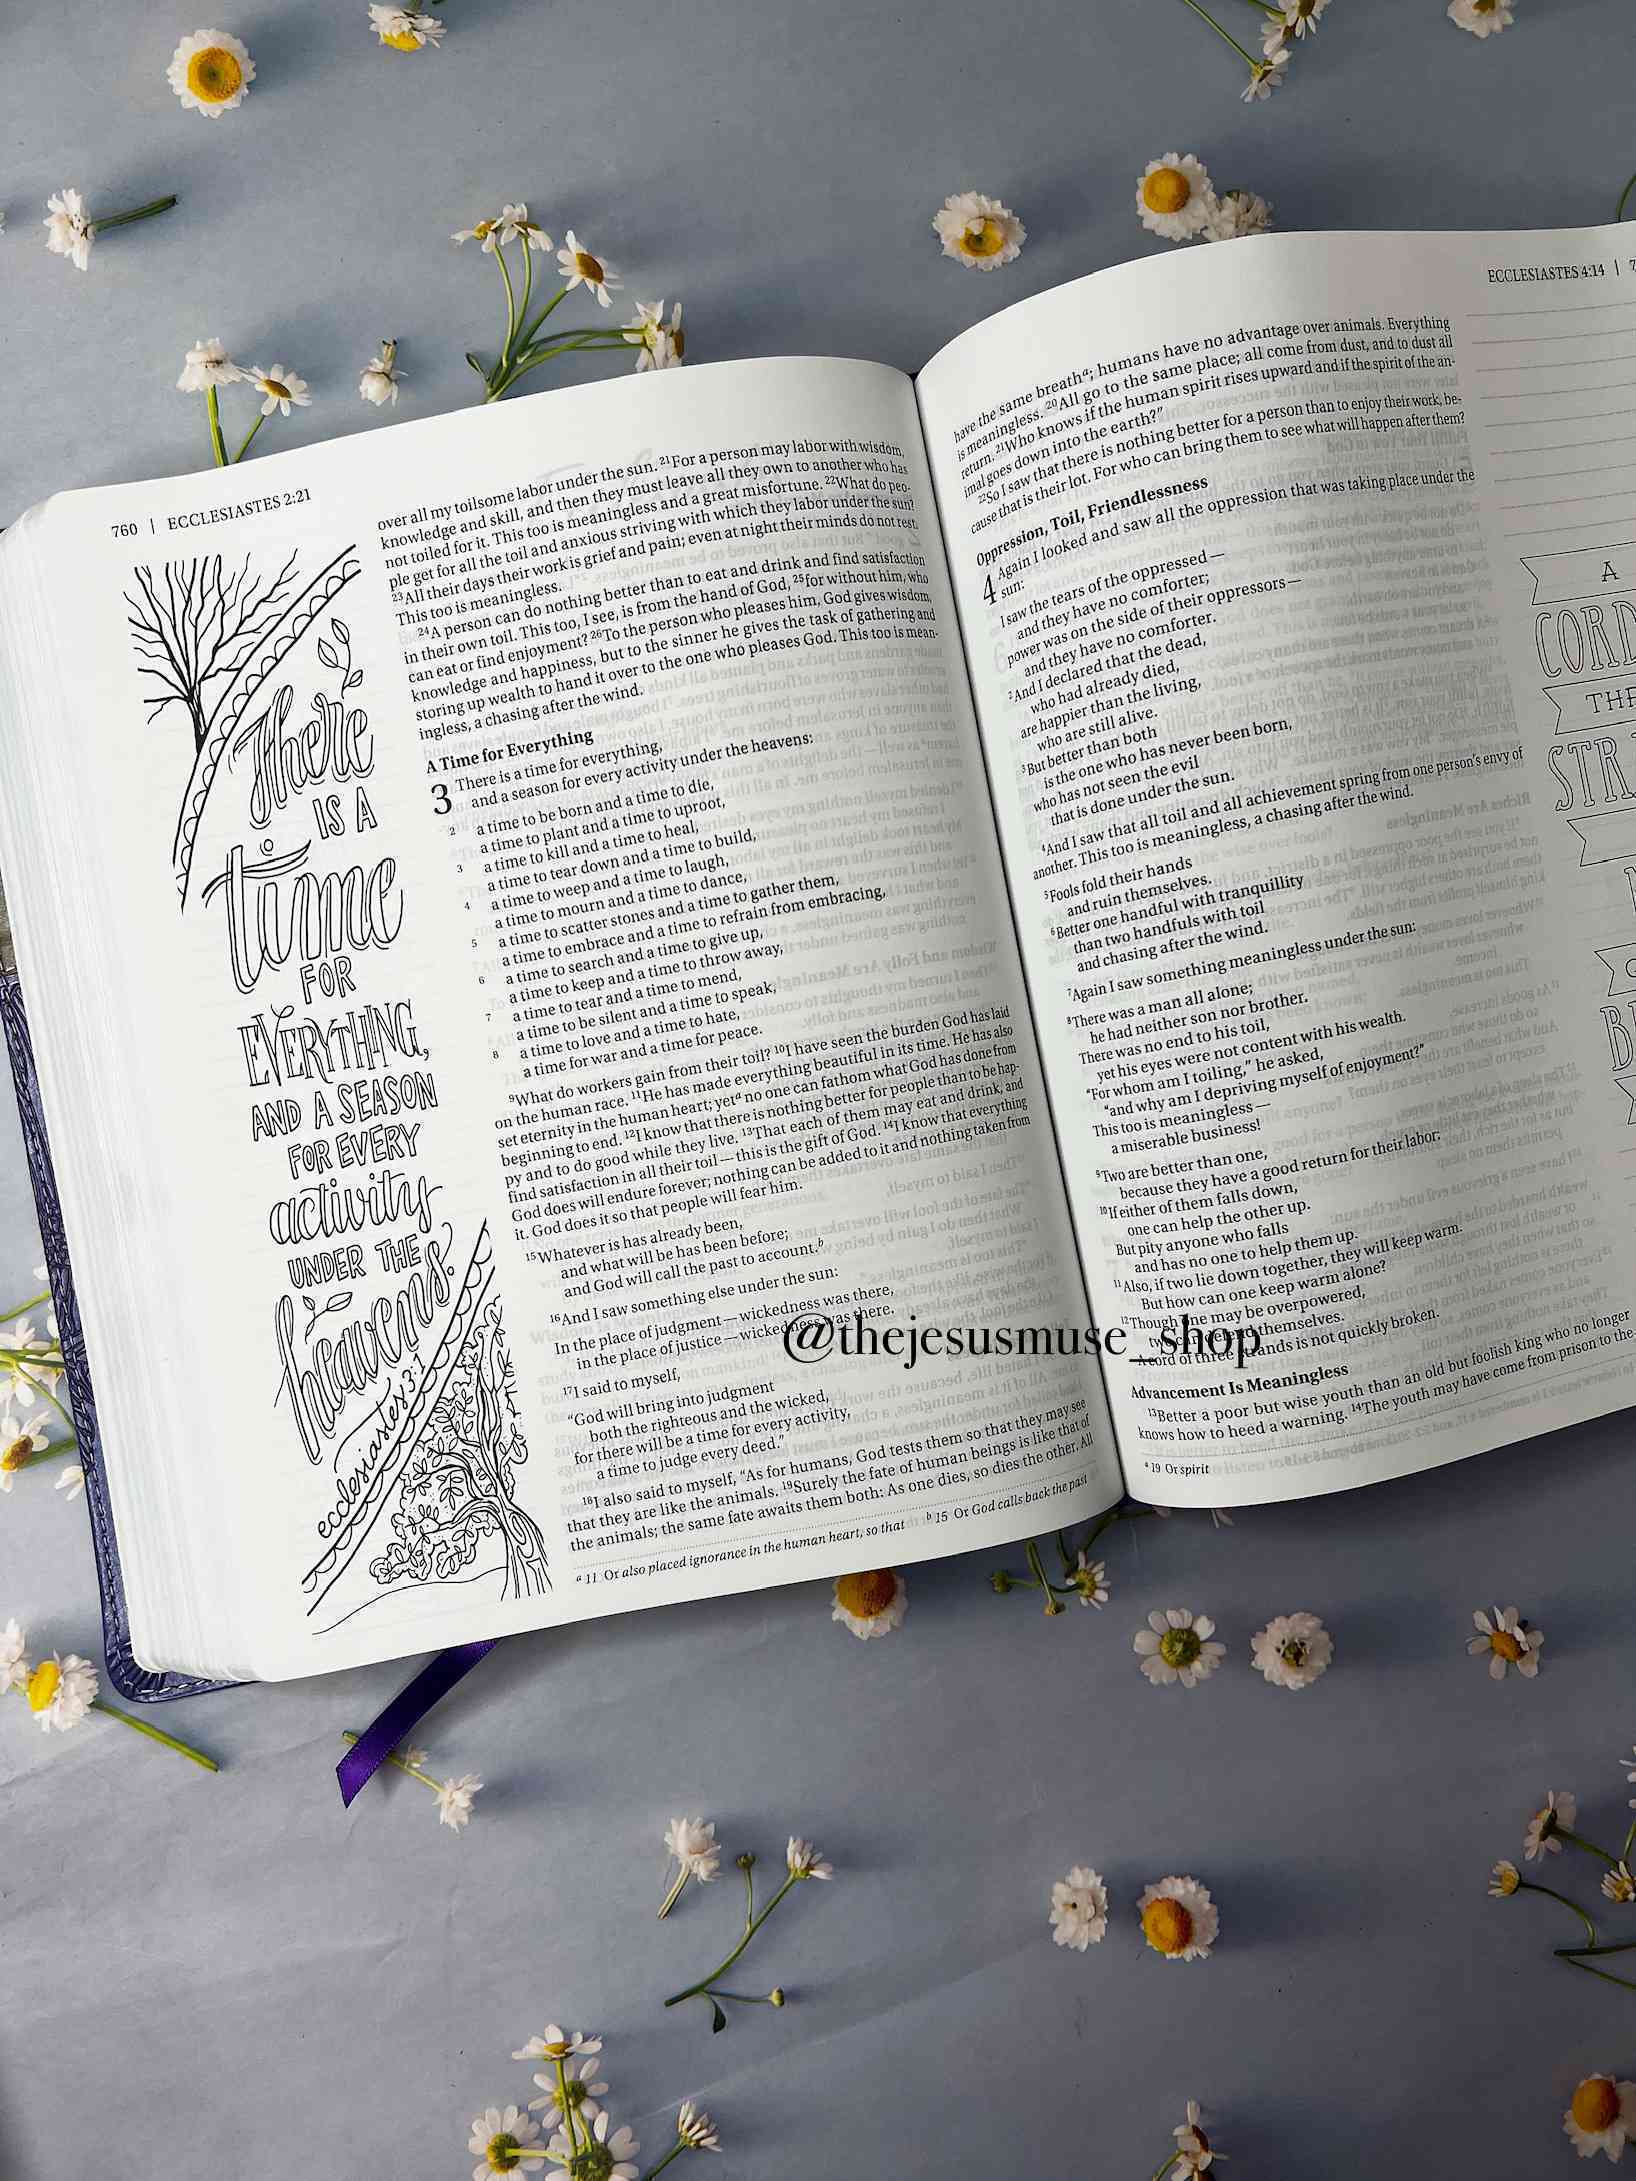 760 | ECCLESIASTES 2:21
There
IS A
time
FOR
EVERYTHING,
AND A SEASON
FOR EVERY
activity
UNDER THE
heavens.
ecclesiastes 3:1
over all my toilsome labor under the sun. 21For a person may labor with wisdom,
knowledge and skill, and then they must leave all they own to another who has
not toiled for it. This too is meaningless and a great misfortune. 22What do peo-
ple get for all the toil and anxious striving with which they labor under the sun?
23All their days their work is grief and pain; even at night their minds do not rest.
This too is meaningless.
24A person can do nothing better than to eat and drink and find satisfaction
in their own toil. This too, I see, is from the hand of God, 25for without him, who
can eat or find enjoyment? 26To the person who pleases him, God gives wisdom,
knowledge and happiness, but to the sinner he gives the task of gathering and
storing up wealth to hand it over to the one who pleases God. This too is mean-
ingless, a chasing after the wind.
A Time for Everything
3 There is a time for everything,
and a season for every activity under the heavens:
2 a time to be born and a time to die,
a time to plant and a time to uproot,
3 a time to kill and a time to heal,
a time to tear down and a time to build,
4 a time to weep and a time to laugh,
a time to mourn and a time to dance,
5 a time to scatter stones and a time to gather them,
a time to embrace and a time to refrain from embracing,
6 a time to search and a time to give up,
a time to keep and a time to throw away,
7 a time to tear and a time to mend,
a time to be silent and a time to speak,
8 a time to love and a time to hate,
a time for war and a time for peace.
9What do workers gain from their toil? 10I have seen the burden God has laid
on the human race. 11He has made everything beautiful in its time. He has also
set eternity in the human heart; yeta no one can fathom what God has done from
beginning to end. 12I know that there is nothing better for people than to be hap-
py and to do good while they live. 13That each of them may eat and drink, and
find satisfaction in all their toil — this is the gift of God. 14I know that everything
God does will endure forever; nothing can be added to it and nothing taken from
it. God does it so that people will fear him.
15Whatever is has already been,
and what will be has been before;
and God will call the past to account.b
16And I saw something else under the sun:
In the place of judgment — wickedness was there,
in the place of justice — wickedness was there.
17I said to myself,
“God will bring into judgment
both the righteous and the wicked,
for there will be a time for every activity,
a time to judge every deed.”
18I also said to myself, “As for humans, God tests them so that they may see
that they are like the animals. 19Surely the fate of human beings is like that of
the animals; the same fate awaits them both: As one dies, so dies the other. All
a 11 Or also placed ignorance in the human heart, so that b 15 Or God calls back the past
ECCLESIASTES 4:14 |
have the same breatha; humans have no advantage over animals. Everything
is meaningless. 20All go to the same place; all come from dust, and to dust all
return. 21Who knows if the human spirit rises upward and if the spirit of the an-
imal goes down into the earth?”
22So I saw that there is nothing better for a person than to enjoy their work, be-
cause that is their lot. For who can bring them to see what will happen after them?
Oppression, Toil, Friendlessness
4 Again I looked and saw all the oppression that was taking place under the
sun:
I saw the tears of the oppressed —
and they have no comforter;
power was on the side of their oppressors —
and they have no comforter.
2And I declared that the dead,
who had already died,
are happier than the living,
who are still alive.
3But better than both
is the one who has never been born,
who has not seen the evil
that is done under the sun.
4And I saw that all toil and all achievement spring from one person's envy of
another. This too is meaningless, a chasing after the wind.
5Fools fold their hands
and ruin themselves.
6Better one handful with tranquillity
than two handfuls with toil
and chasing after the wind.
7Again I saw something meaningless under the sun:
8There was a man all alone;
he had neither son nor brother.
There was no end to his toil,
yet his eyes were not content with his wealth.
“For whom am I toiling,” he asked,
“and why am I depriving myself of enjoyment?”
This too is meaningless —
a miserable business!
9Two are better than one,
because they have a good return for their labor:
10If either of them falls down,
one can help the other up.
But pity anyone who falls
and has no one to help them up.
11Also, if two lie down together, they will keep warm.
But how can one keep warm alone?
12Though one may be overpowered,
two can defend themselves.
A cord of three strands is not quickly broken.
Advancement Is Meaningless
13Better a poor but wise youth than an old but foolish king who no longer
knows how to heed a warning. 14The youth may have come from prison to the
a 19 Or spirit
A
CORD
@thejesusmuse_shop